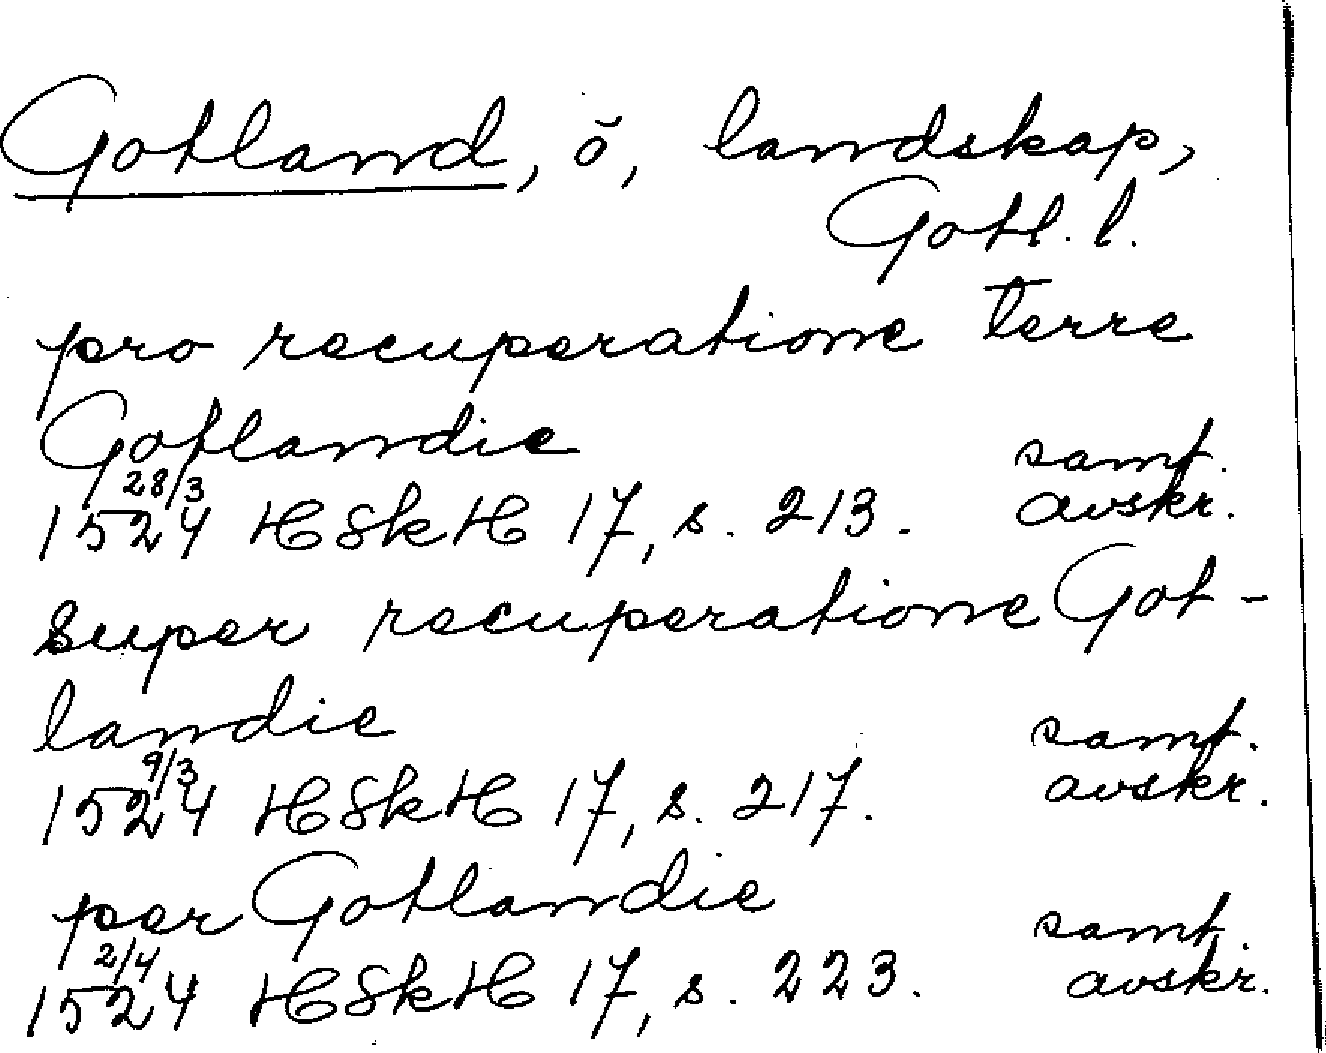 Gotland, ö, landskap,
Gotl. l.
pro recuperatione terre
Gotlandie samt.
28/3 1524 HSkH 17, s. 213. avskr.
super recuperatione Got-
landie samt.
9/3 1524 HSkH 17, s. 217. avskr.
per Gotlandie samt.
2/4 1524 HSkH 17, s. 223. avskr.